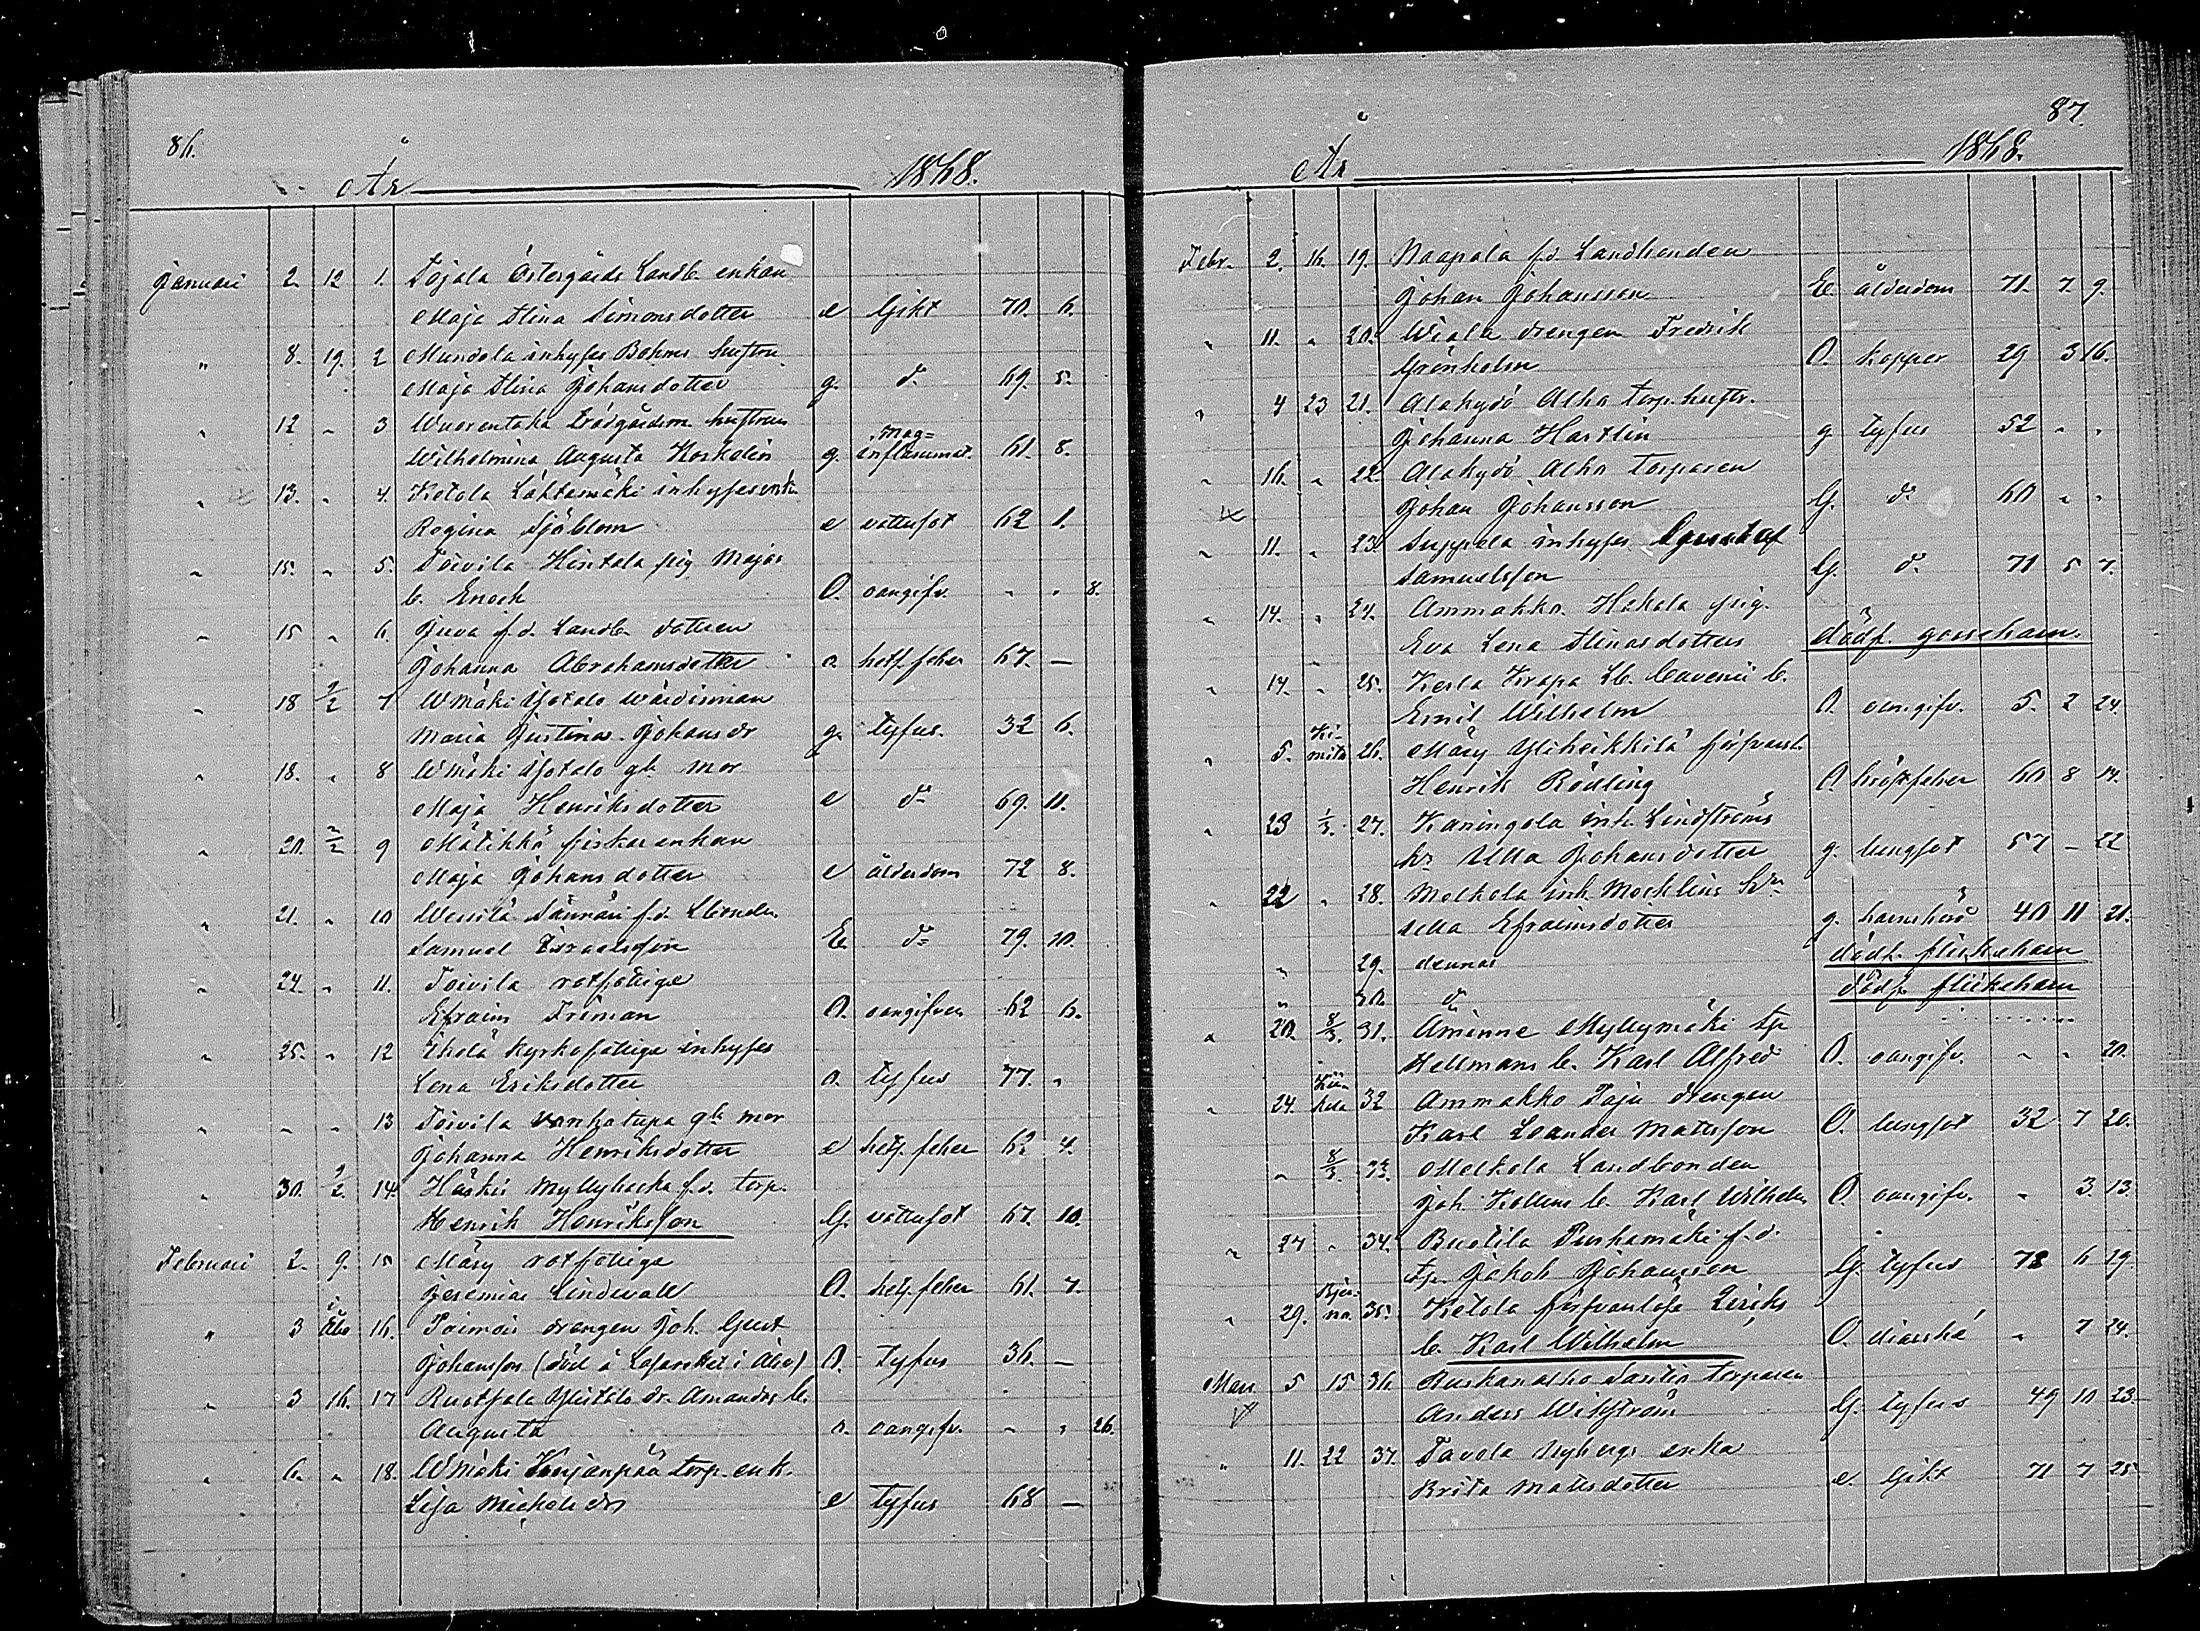 86.
År 1868.
Januari 2. 12 1. Tojala Östergårds Landb. enkan
Maja Stina Simonsdotter e Gikt 70. 6.
" 8. 19. 2 Mundola inhyses Bohms hustru
Maja Stina Johansdotter g. d:o 69. 5.
" 12 " 3 Wuorentaka trädgårdsm. hustrun
Wilhelmina Augusta Koskelin g. mag= inflammat. 61. 8.
" 13. " 4. Ketola Lähteenmäki inhyses enk.
Regina Sjöblom e vattusot 62 1.
" 15. " 5. Toivila Hintala pig. Majas
b. Enoch O. oangifv. " " 8.
" 15 " 6. Juva f.d. Landb. dottren
Johanna Abrahamsdotter o. hetf. feber 67. —
" 18 9/2 7 Wmäki Ylotalo wärdinnan
Maria Justina Johansdr g. tyfus. 32 6.
" 18. " 8 Wmäki Ylotalo gb. mor
Maja Henriksdotter e d:o 69. 11.
" 20. 2/2 9 Mätikkö fiskar enkan
Maja Johansdotter e ålderdom 72 8.
" 21. " 10 Wessilä f.d. Lbonden
Samuel Israelsson E. d:o 79. 10.
" 24. " 11. Toivila rotfattige
Efraim Friman O. oangifven 62 6.
" 25. " 12 Ihola kyrkofattige inhyses
Lena Eriksdotter o. tyfus 77. "
" " " 13 Toivila gb. mor
Johanna Henriksdotter e hetf. feber 62 4.
" 30. 9/2. 14. Häskis Myllybacka f.d. torp.
Henrik Henriksson G. vattusot 67. 10.
Februari 2. 9. 15 Märy rotfattige
Jeremias Lindevall O. hetf. feber 61. 7.
" 3 i Åbo 16. Toimois drengen Joh. Gust
Johansson (död å Lasarettet i Åbo) O. Tyfus 36. —
" 3 16. 17 Ylistalo dr. Amandas b.
Augusta o. oangifv. " " 26.
" 6. " 18. Wmäki torp. enk.
Lisa Michelsdr e Tyfus 68 —
87.
År 1868.
Febr. 2. 16. 19. Naapala f.d. Landbonden
Johan Johansson E. ålderdom 71. 7 9.
" 11. " 20. Wiala drengen Fredrik
Grönholm O. koppor 29 3 16.
" 4 23 21. Alakydö Alho torp. hustr.
Johanna Hartlin g tyfus 52 " "
" 16. " 22. Alakydö Alho torparen
Johan Johansson G. d:o 60 " "
" 11. " 23. Suppela inhyses Gustaf
Samuelsson G. d:o 71 5 7.
" 14. " 24. Ammakko Hakala pig.
Eva Lena Stinasdotters dödf. gossebarn.
" 14. " 25. Kesla Krapa Lb. b.
Emil Wilhelm O. oangifv. 5. 2 24.
" 5. Kimito 26. Märy Yliheikkilä försvarsl.
Henrik Rödling O 60 8 14.
" 23 1/3. 27. Kaningola inh. Lindströms
h:u Ulla Johansdotter g. lungsot 57 — 22
" 22 " 28. Melkola inh. Mechlins h:u
Ulla Efraimsdotter g. barnsbörd 40 11 21.
" 29. dennas dödf. flickebarn
" 30. d:o dödf. flickebarn
" 20. 8/3. 31. Åminne Myllymäki tp
Hellmans b. Karl Alfred O. oangifv. " " 20.
" 24. Kiikala 32 Ammakko Taju drengen
Karl Leander Matsson O. lungsot 32 7 20.
" 8/3. 33. Melkola Landbonden
Joh. b. Karl Wilhelm O. oangifv. " 3. 13.
" 27 " 34. Buotila f.d.
tp. Jakob Johansson G. tyfus 78 6 29.
" 29. Bjerno 35. Ketola försvarslöse Leriks
b. Karl Wilhelm O. diarrhé " 7 24.
Mars 5 15 36. torparen
Anders Wikström G. tyfus 49 10 23.
" 11. 22 37. Tavola Nybergs enka
Brita Matsdotter e. Gikt 71 7 25